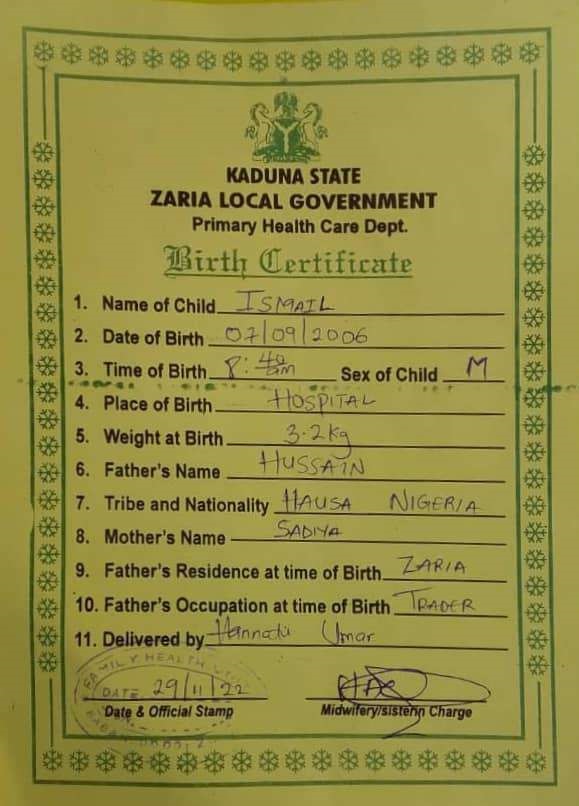 KADUNA STATE
ZARIA LOCAL GOVERNMENT
Primary Health Care Dept.
Birth Certificate
1. Name of Child ISMAIL
2. Date of Birth 07/09/2006
3. Time of Birth 8:40am Sex of Child M
4. Place of Birth HOSPITAL
5. Weight at Birth 3.2kg
6. Father's Name HUSSAIN
7. Tribe and Nationality HAUSA NIGERIA
8. Mother's Name SADIYA
9. Father's Residence at time of Birth ZARIA
10. Father's Occupation at time of Birth TRADER
11. Delivered by Hannatu Umar
FAMILY HEALTH
DATE. 29/11/22
Date & Official Stamp Midwifery/sisterin Charge